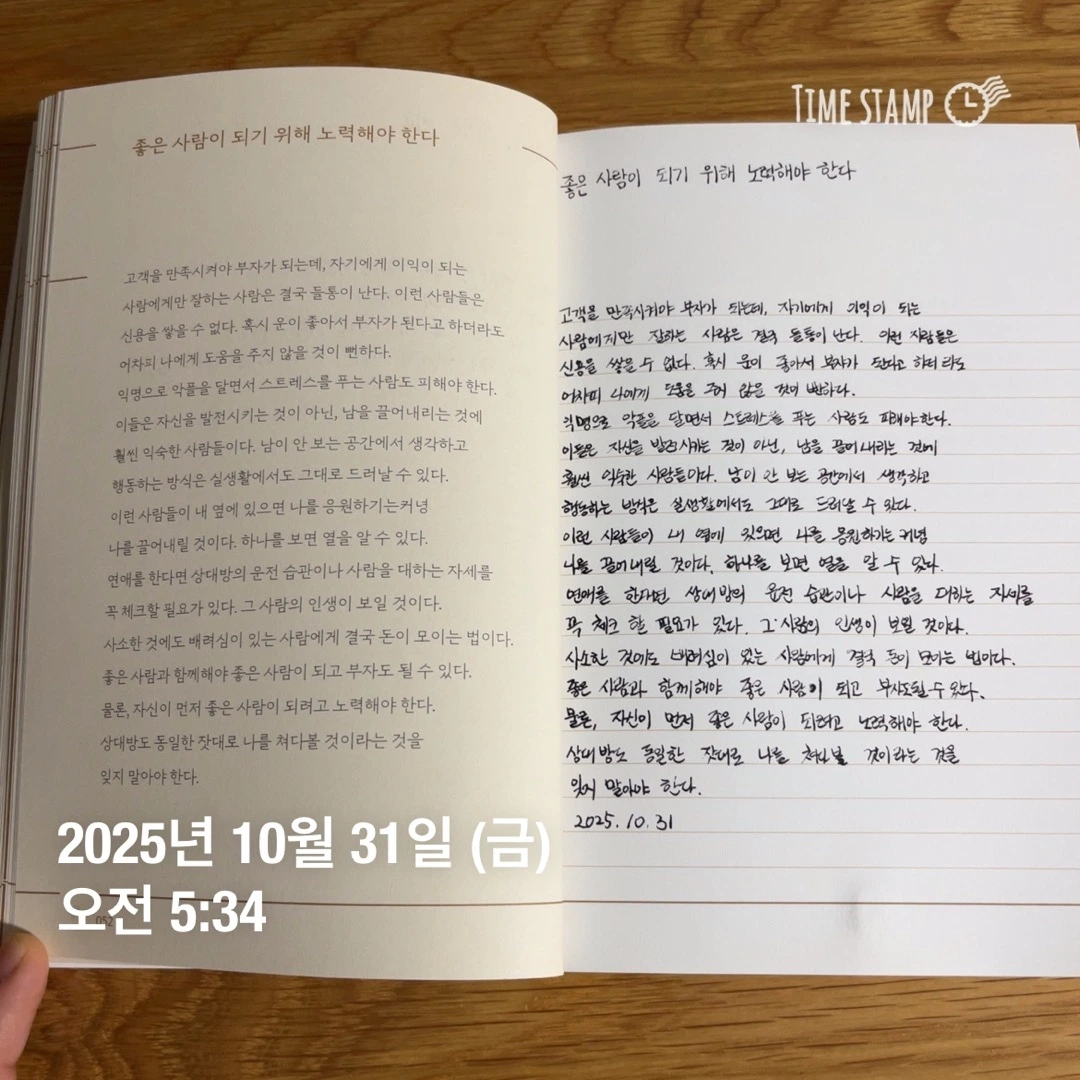 TIME STAMP
좋은 사람이 되기 위해 노력해야 한다
고객을 만족시켜야 부자가 되는데, 자기에게 이익이 되는
사람에게만 잘하는 사람은 결국 들통이 난다. 이런 사람들은
신용을 쌓을 수 없다. 혹시 운이 좋아서 부자가 된다고 하더라도
어차피 나에게 도움을 주지 않을 것이 뻔하다.
익명으로 악플을 달면서 스트레스를 푸는 사람도 피해야 한다.
이들은 자신을 발전시키는 것이 아닌, 남을 끌어내리는 것에
훨씬 익숙한 사람들이다. 남이 안 보는 공간에서 생각하고
행동하는 방식은 실생활에서도 그대로 드러날 수 있다.
이런 사람들이 내 옆에 있으면 나를 응원하기는커녕
나를 끌어내릴 것이다. 하나를 보면 열을 알 수 있다.
연애를 한다면 상대방의 운전 습관이나 사람을 대하는 자세를
꼭 체크할 필요가 있다. 그 사람의 인생이 보일 것이다.
사소한 것에도 배려심이 있는 사람에게 결국 돈이 모이는 법이다.
좋은 사람과 함께해야 좋은 사람이 되고 부자도 될 수 있다.
물론, 자신이 먼저 좋은 사람이 되려고 노력해야 한다.
상대방도 동일한 잣대로 나를 쳐다볼 것이라는 것을
잊지 말아야 한다.
052
좋은 사람이 되기 위해 노력해야 한다
고객을 만족시켜야 부자가 되는데, 자기에게 이익이 되는
사람에게만 잘하는 사람은 결국 들통이 난다. 이런 사람들은
신용을 쌓을 수 없다. 혹시 운이 좋아서 부자가 된다고 하더라도
어차피 나에게 도움을 주지 않을 것이 뻔하다.
익명으로 악플을 달면서 스트레스를 푸는 사람도 피해야한다.
이들은 자신을 발전시키는 것이 아닌, 남을 끌어내리는 것에
훨씬 익숙한 사람들이다. 남이 안 보는 공간에서 생각하고
행동하는 방식은 실생활에서도 그대로 드러날 수 있다.
이런 사람들이 내 옆에 있으면 나를 응원하기는커녕
나를 끌어내릴 것이다. 하나를 보면 열을 알 수 있다.
연애를 한다면 상대방의 운전 습관이나 사람을 대하는 자세를
꼭 체크 할 필요가 있다. 그 사람의 인생이 보일 것이다.
사소한 것에도 배려심이 있는 사람에게 결국 돈이 모이는 법이다.
좋은 사람과 함께해야 좋은 사람이 되고 부자도 될 수 있다.
물론, 자신이 먼저 좋은 사람이 되려고 노력해야 한다.
상대방도 동일한 잣대로 나를 쳐다볼 것이라는 것을
잊지 말아야 한다.
2025.10.31
2025년 10월 31일 (금)
오전 5:34